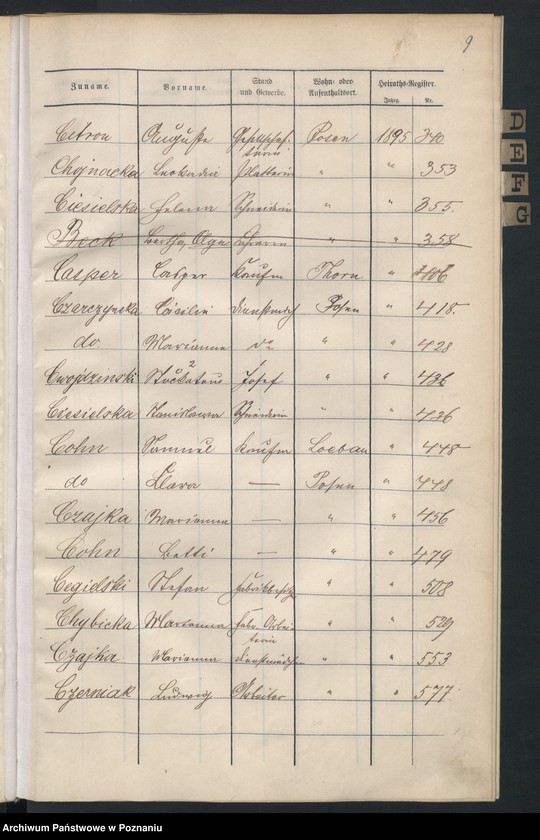 9
Zuname. Vorname. Stand und Gewerbe. Wohn- oder Aufenthaltsort. Heiraths-Register.
Jahrg. Nr.
Citron Auguste Gesellschaf-terin Posen 1895 340
Chojnacka Leokadie Plätterin " " 353
Ciesielska Helena Schneiderin " " 355.
Beck Bertha Olga " " 358
Casper Casper Kaufm Thorn " 406
Czarczynska Cäcilie Dienstmdch Posen " 418.
do. Marianna do " " 428
Cwojdzinski Josef " " 436
Ciesielska Stanislawa Schneiderin " " 436
Cohn Samuel Kaufm Loebau " 448
do Clara — Posen " 448
Czajka Marianna — " " 456
Cohn Betti — " " 479
Cegielski Stefan Fabrikbesitzer " " 508
Chybicka Marianna Fabr. Arbei-terin " " 529
Czajka Marianna Dienstmädchen " " 553
Czerniak Ludwig Arbeiter " " 577
D
E
F
G
Archiwum Państwowe w Poznaniu